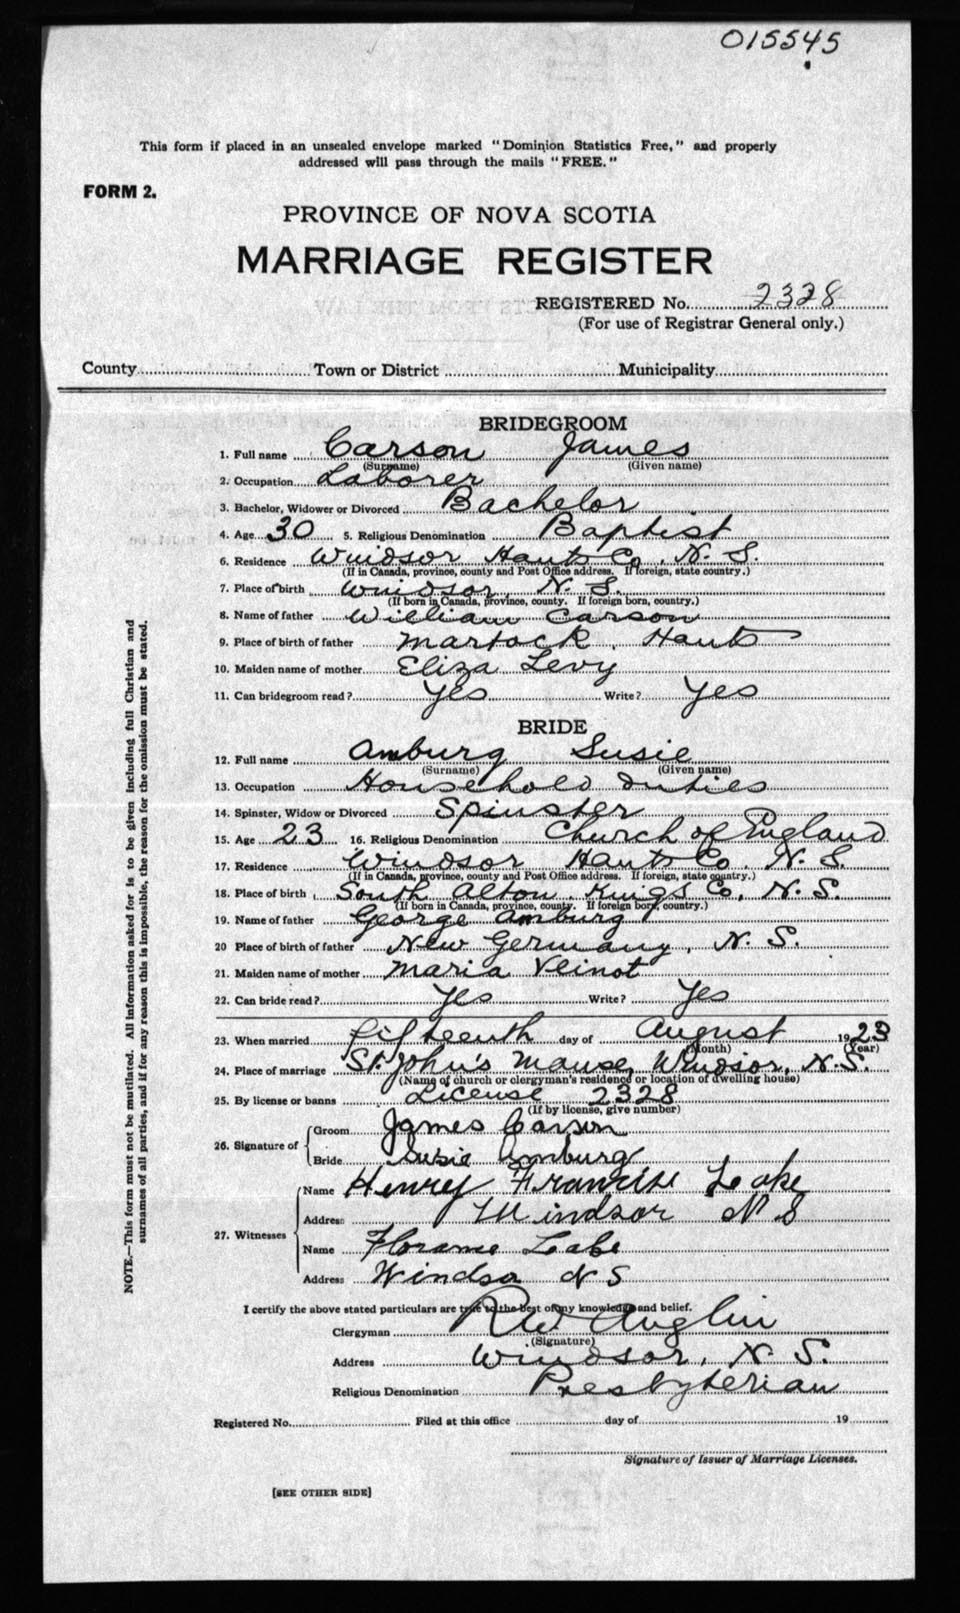 015545
This form if placed in an unsealed envelope marked "Dominion Statistics Free," and properly
addressed will pass through the mails "FREE."
FORM 2.
PROVINCE OF NOVA SCOTIA
MARRIAGE REGISTER
REGISTERED No. 2328
(For use of Registrar General only.)
County Town or District Municipality
BRIDEGROOM
1. Full name Carson James
(Surname) (Given name)
2. Occupation Laborer
3. Bachelor, Widower or Divorced Bachelor
4. Age 30 5. Religious Denomination Baptist
6. Residence Windsor Hants Co, N. S.
(If in Canada, province, county and Post Office address. If foreign, state country.)
7. Place of birth Windsor, N. S.
(If born in Canada, province, county. If foreign born, country.)
8. Name of father William Carson
9. Place of birth of father Martock, Hants
10. Maiden name of mother Eliza Levy
11. Can bridegroom read? Yes Write? Yes
BRIDE
12. Full name Amburg Susie
(Surname) (Given name)
13. Occupation Household duties
14. Spinster, Widow or Divorced Spinster
15. Age 23 16. Religious Denomination Church of England
17. Residence Windsor Hants Co. N. S.
(If in Canada, province, county and Post Office address. If foreign, state country.)
18. Place of birth South Alton Kings Co, N. S.
(If born in Canada, province, county. If foreign born, country.)
19. Name of father George Amburg
20 Place of birth of father New Germany, N. S.
21. Maiden name of mother Maria Veinot
22. Can bride read? Yes Write? Yes
23. When married fifteenth day of August 1923
(Month) (Year)
24. Place of marriage St. John's Manse, Windsor, N. S.
(Name of church or clergyman's residence or location of dwelling house)
25. By license or banns License 2328
(If by license, give number)
26. Signature of Groom James Carson
Bride Susie Amburg
27. Witnesses Name Henry Francis Lake
Address Windsor N S
Name Lake
Address Windsor N S
I certify the above stated particulars are true to the best of my knowledge and belief.
Clergyman R W Anglin
(Signature)
Address Windsor, N. S.
Religious Denomination Presbyterian
Registered No. Filed at this office day of 19
Signature of Issuer of Marriage Licenses.
[SEE OTHER SIDE]
NOTE.—This form must not be mutilated. All information asked for is to be given including full Christian and
surnames of all parties, and if for any reason this is impossible, the reason for the omission must be stated.